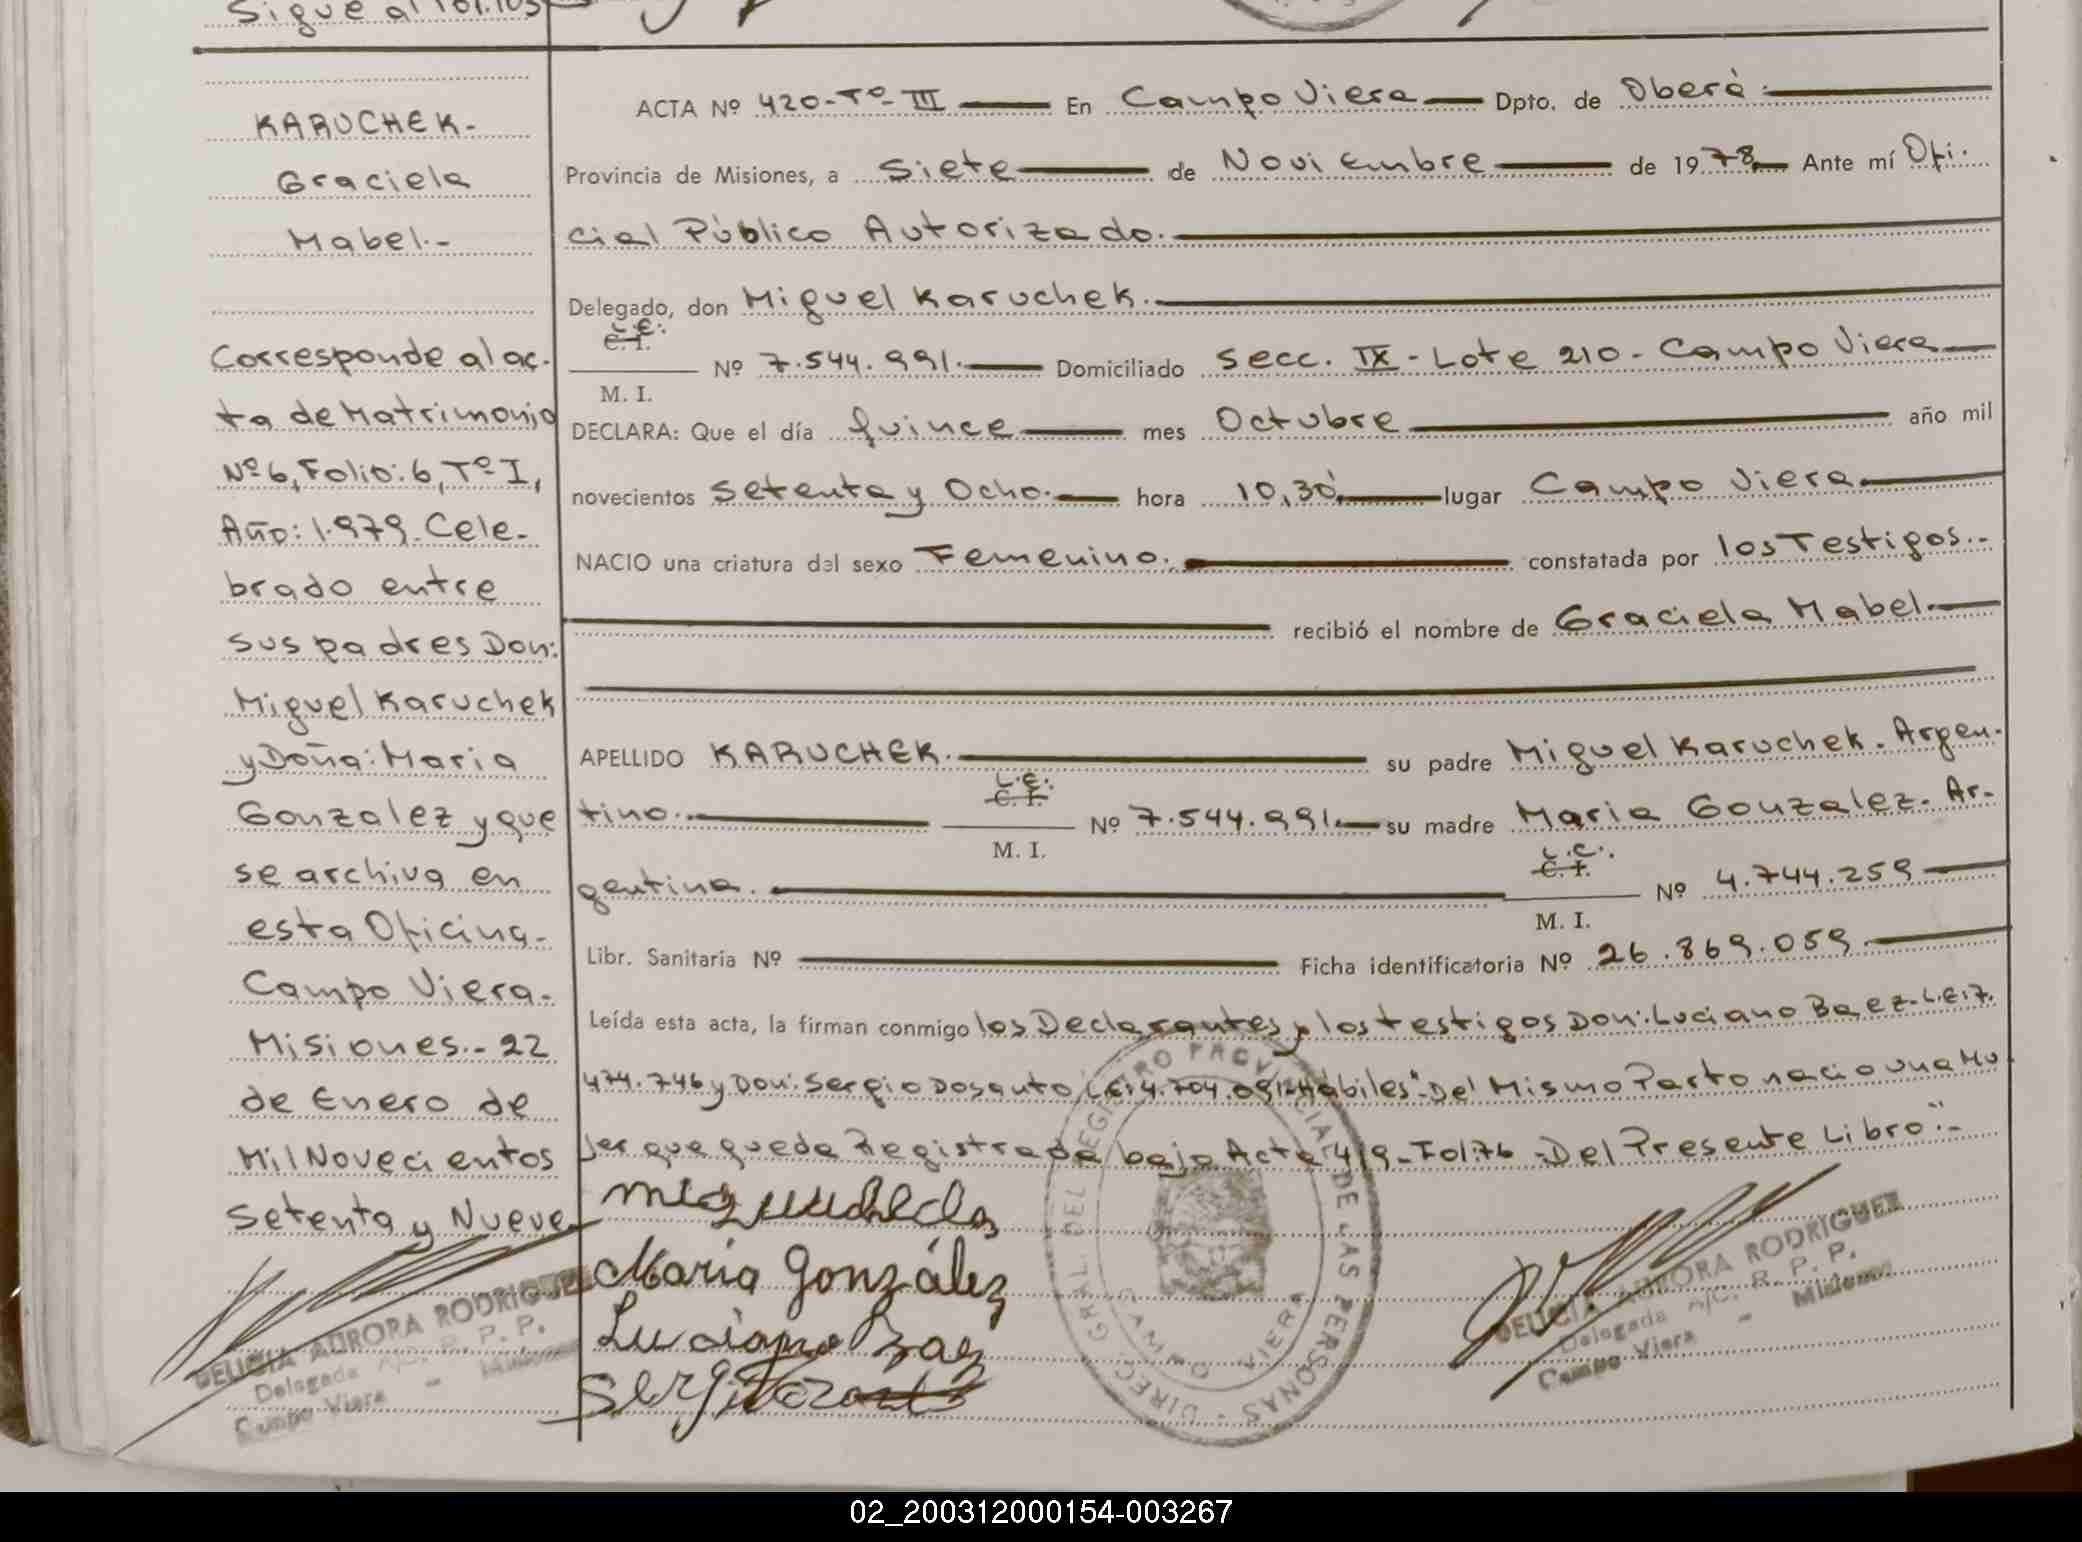 Sigue al Fol. 103
KARUCHEK.-
Graciela
Mabel.-
Corresponde al ac-
ta de Matrimonio
Nº 6, Folio: 6, Tº I,
Año: 1.979. Cele-
brado entre
sus padres Don:
Miguel Karuchek
y Doña: Maria
Gonzalez y que
se archiva en
esta Oficina.
Campo Viera.
Misiones.- 22
de Enero de
Mil Noveci entos
Setenta y Nueve
DELICIA AURORA RODRIGUEZ
Delegada A/C. R. P. P.
Campo Viera - Misiones
ACTA Nº 420-Tº-III En Campo Viera Dpto. de Oberá.
Provincia de Misiones, a Siete de Noviembre de 1978 Ante mí Ofi.
cial Público Autorizado.
Delegado, don Miguel Karuchek.
L.E.
C. I.
M. I. Nº 7.544.991. Domiciliado Secc. IX - Lote 210 - Campo Viera
DECLARA: Que el día quince mes Octubre año mil
novecientos Setenta y Ocho. hora 10,30 lugar Campo Viera
NACIO una criatura del sexo Femenino. constatada por los Testigos.-
recibió el nombre de Graciela Mabel.
APELLIDO KARUCHEK. su padre Miguel Karuchek. Argen-
tino. L.E. C. I. M. I. Nº 7.544.991. su madre Maria Gonzalez. Ar-
gentina. L.C. C. I. M. I. Nº 4.744.259
Libr. Sanitaria Nº Ficha identificatoria Nº 26.869.059.
Leída esta acta, la firman conmigo los Declarantes y los testigos Don: Luciano Baez. L.E: 7.
474.746 y Don: Sergio Dosanto L.E: 4.704.091 Hábiles "Del Mismo Parto nacio una Mu
jer que queda Registrada bajo Acta 419-Fol: 76 - Del Presente Libro".-
María González
Luciano Baez
Sergio
DIREC. GRAL. DEL REGISTRO PROVINCIAL DE LAS PERSONAS
CAMPO VIERA
DELICIA AURORA RODRIGUEZ
Delegada A/C. R. P. P.
Campo Viera - Misiones
02_200312000154-003267